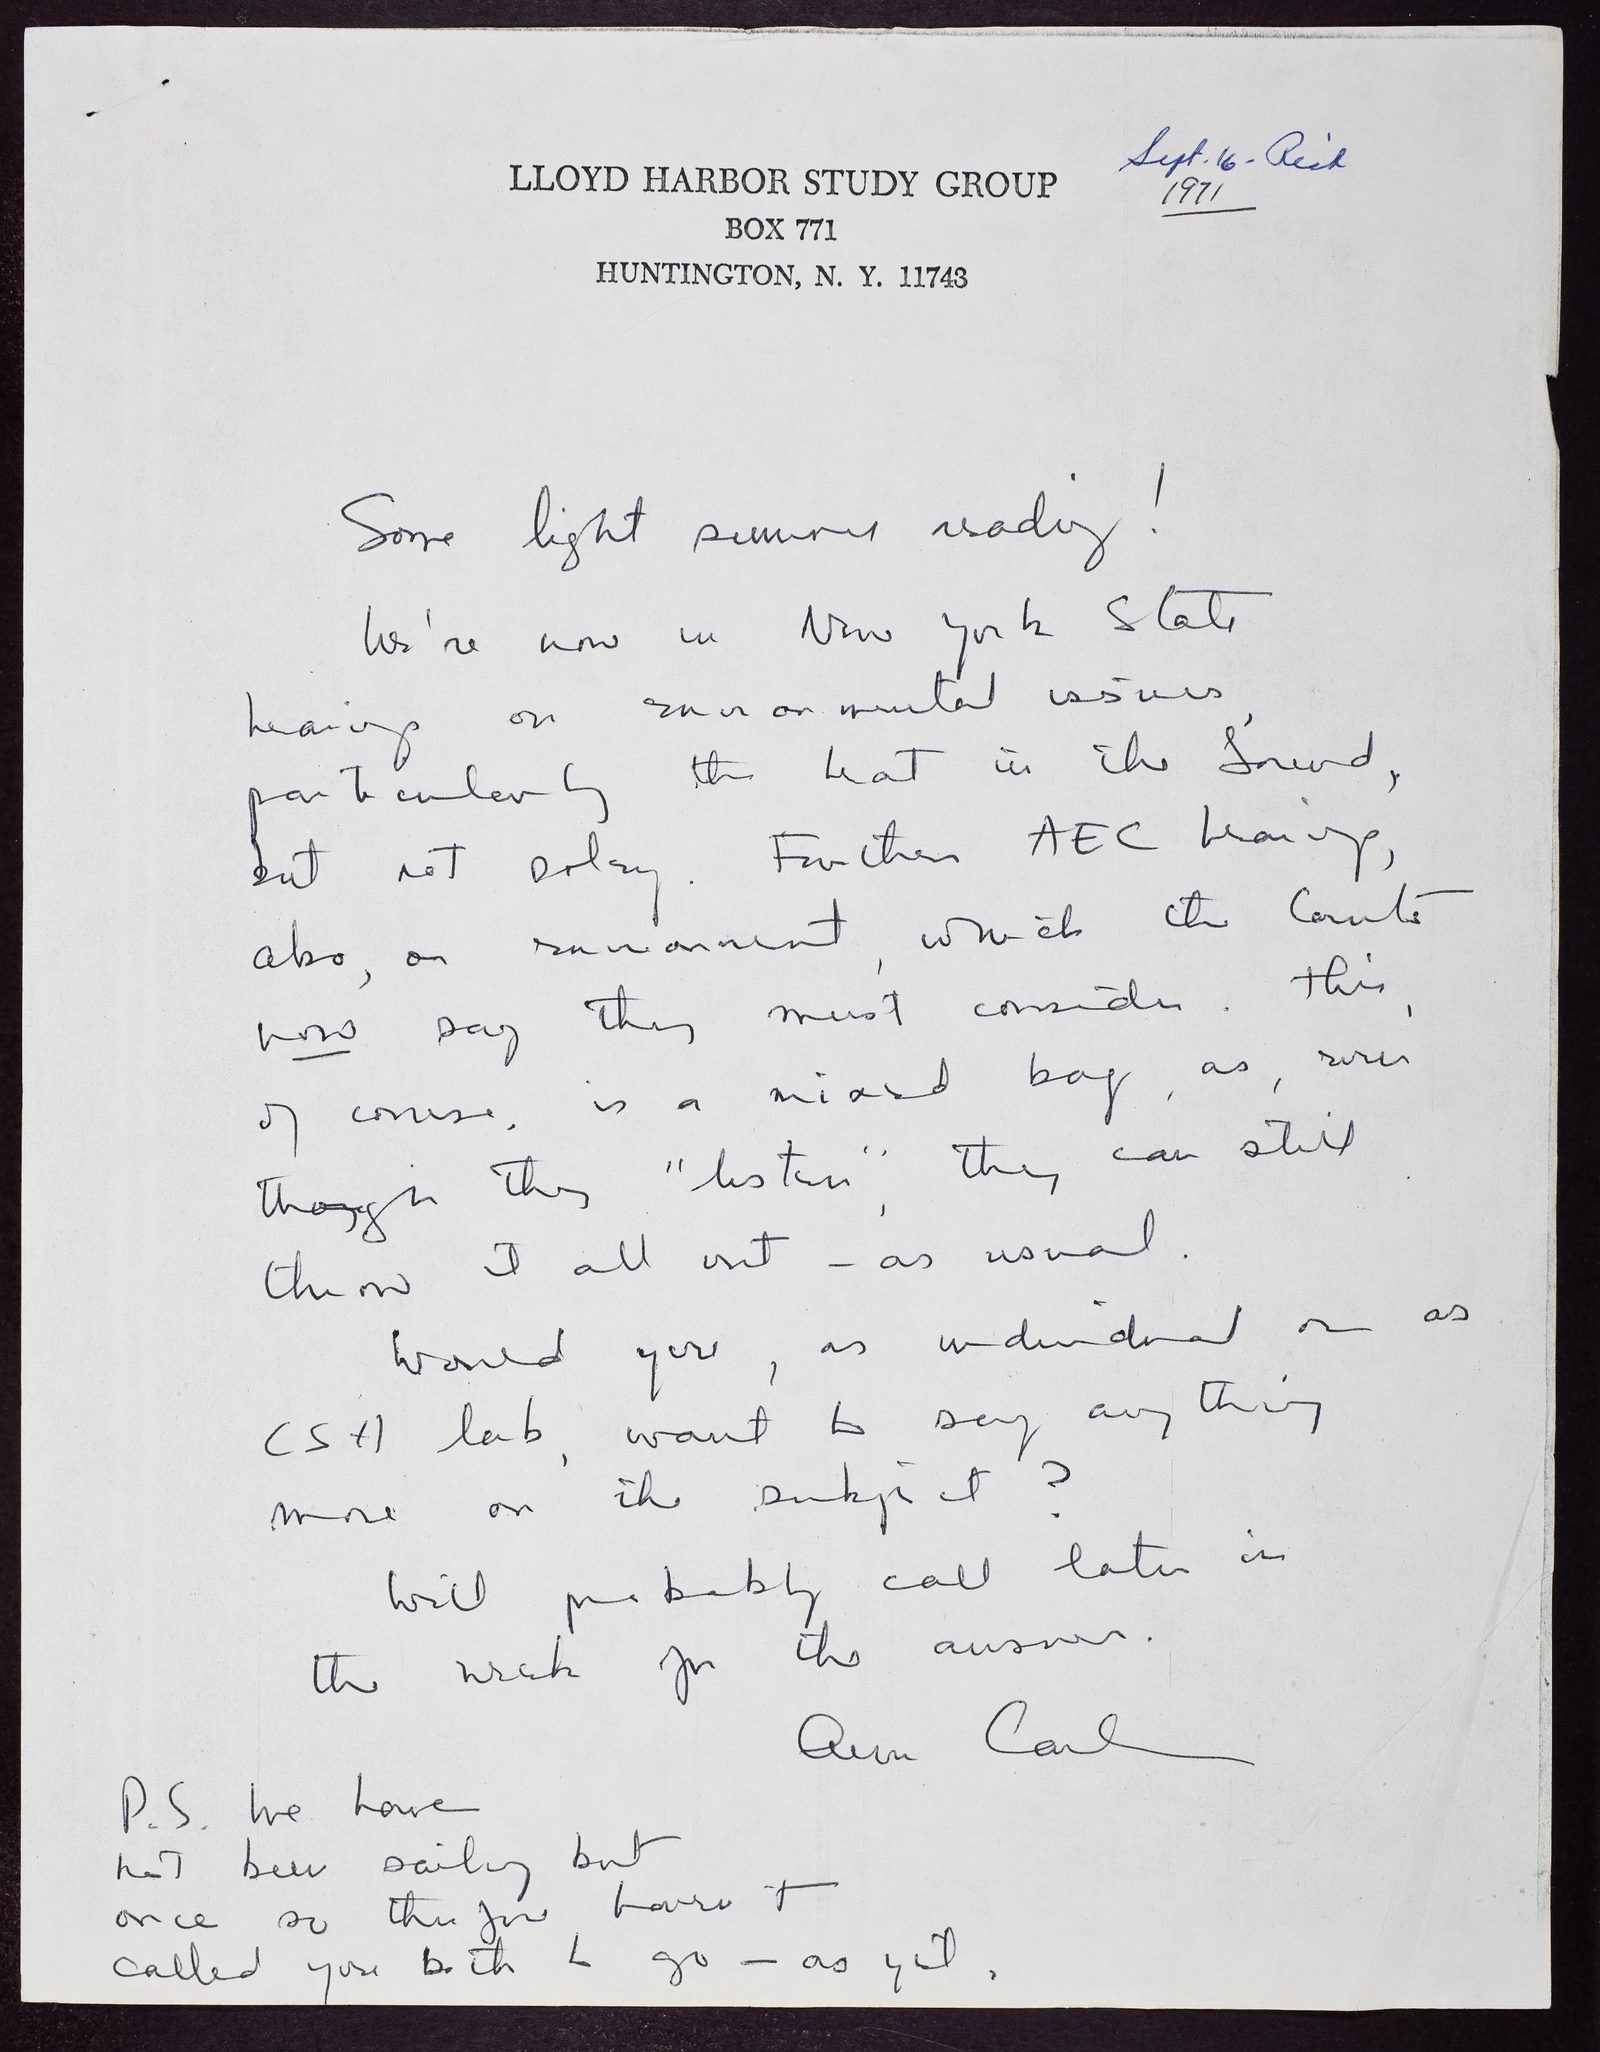 LLOYD HARBOR STUDY GROUP
BOX 771
HUNTINGTON, N. Y. 11743
Sept. 16 -
1971
Some light summer reading!
We're now in New York State
hearings on environmental issues,
particularly the heat in the Sound,
but not solely. Further AEC hearings,
also, on environment, which the Courts
now say they must consider. This,
of course, is a mixed bag, as, even
though they "listen", they can still
throw it all out - as usual.
Would you, as individual or as
CSH lab, want to say anything
more on the subject?
Will probably call later in
the week for the answer.
Ann Carl
P.S. We have
not been sailing but
once so therefore haven't
called you both to go - as yet.